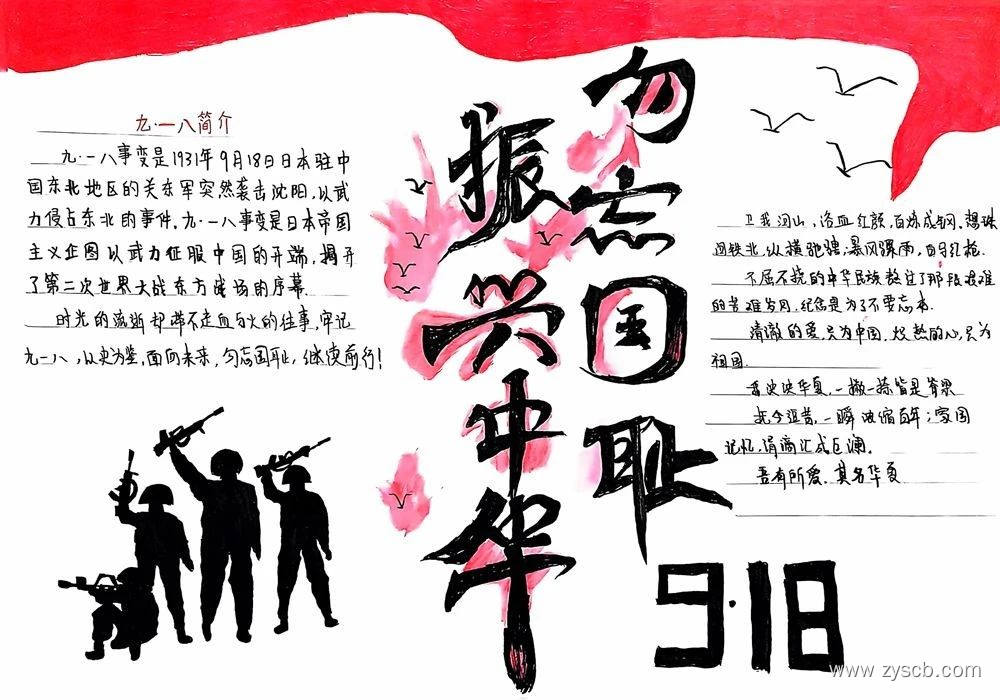 勿忘国耻
振兴中华
九·一八简介
九·一八事变是1931年9月18日日本驻中
国东北地区的关东军突然袭击沈阳,以武
力侵占东北的事件。九·一八事变是日本帝国
主义企图以武力征服中国的开端,揭开
了第二次世界大战东方战场的序幕.
时光的流逝 带不走血与火的往事,牢记
九一八,以史为鉴,面向未来,勿忘国耻,继续前行!
卫我河山,浴血红颜,百炼成钢,
纵横驰骋,暴风骤雨,
不屈不挠的中华民族 过了那段艰难
的苦难岁月,纪念是为了不要忘本.
清澈的爱,只为中国,炽热的心,只为
祖国.
泱泱华夏,一撇一捺皆是脊梁
抚今追昔,一瞬浓缩百年;家国
记忆,涓滴汇成巨澜.
吾有所爱,其名华夏
9·18
www.zyscb.com